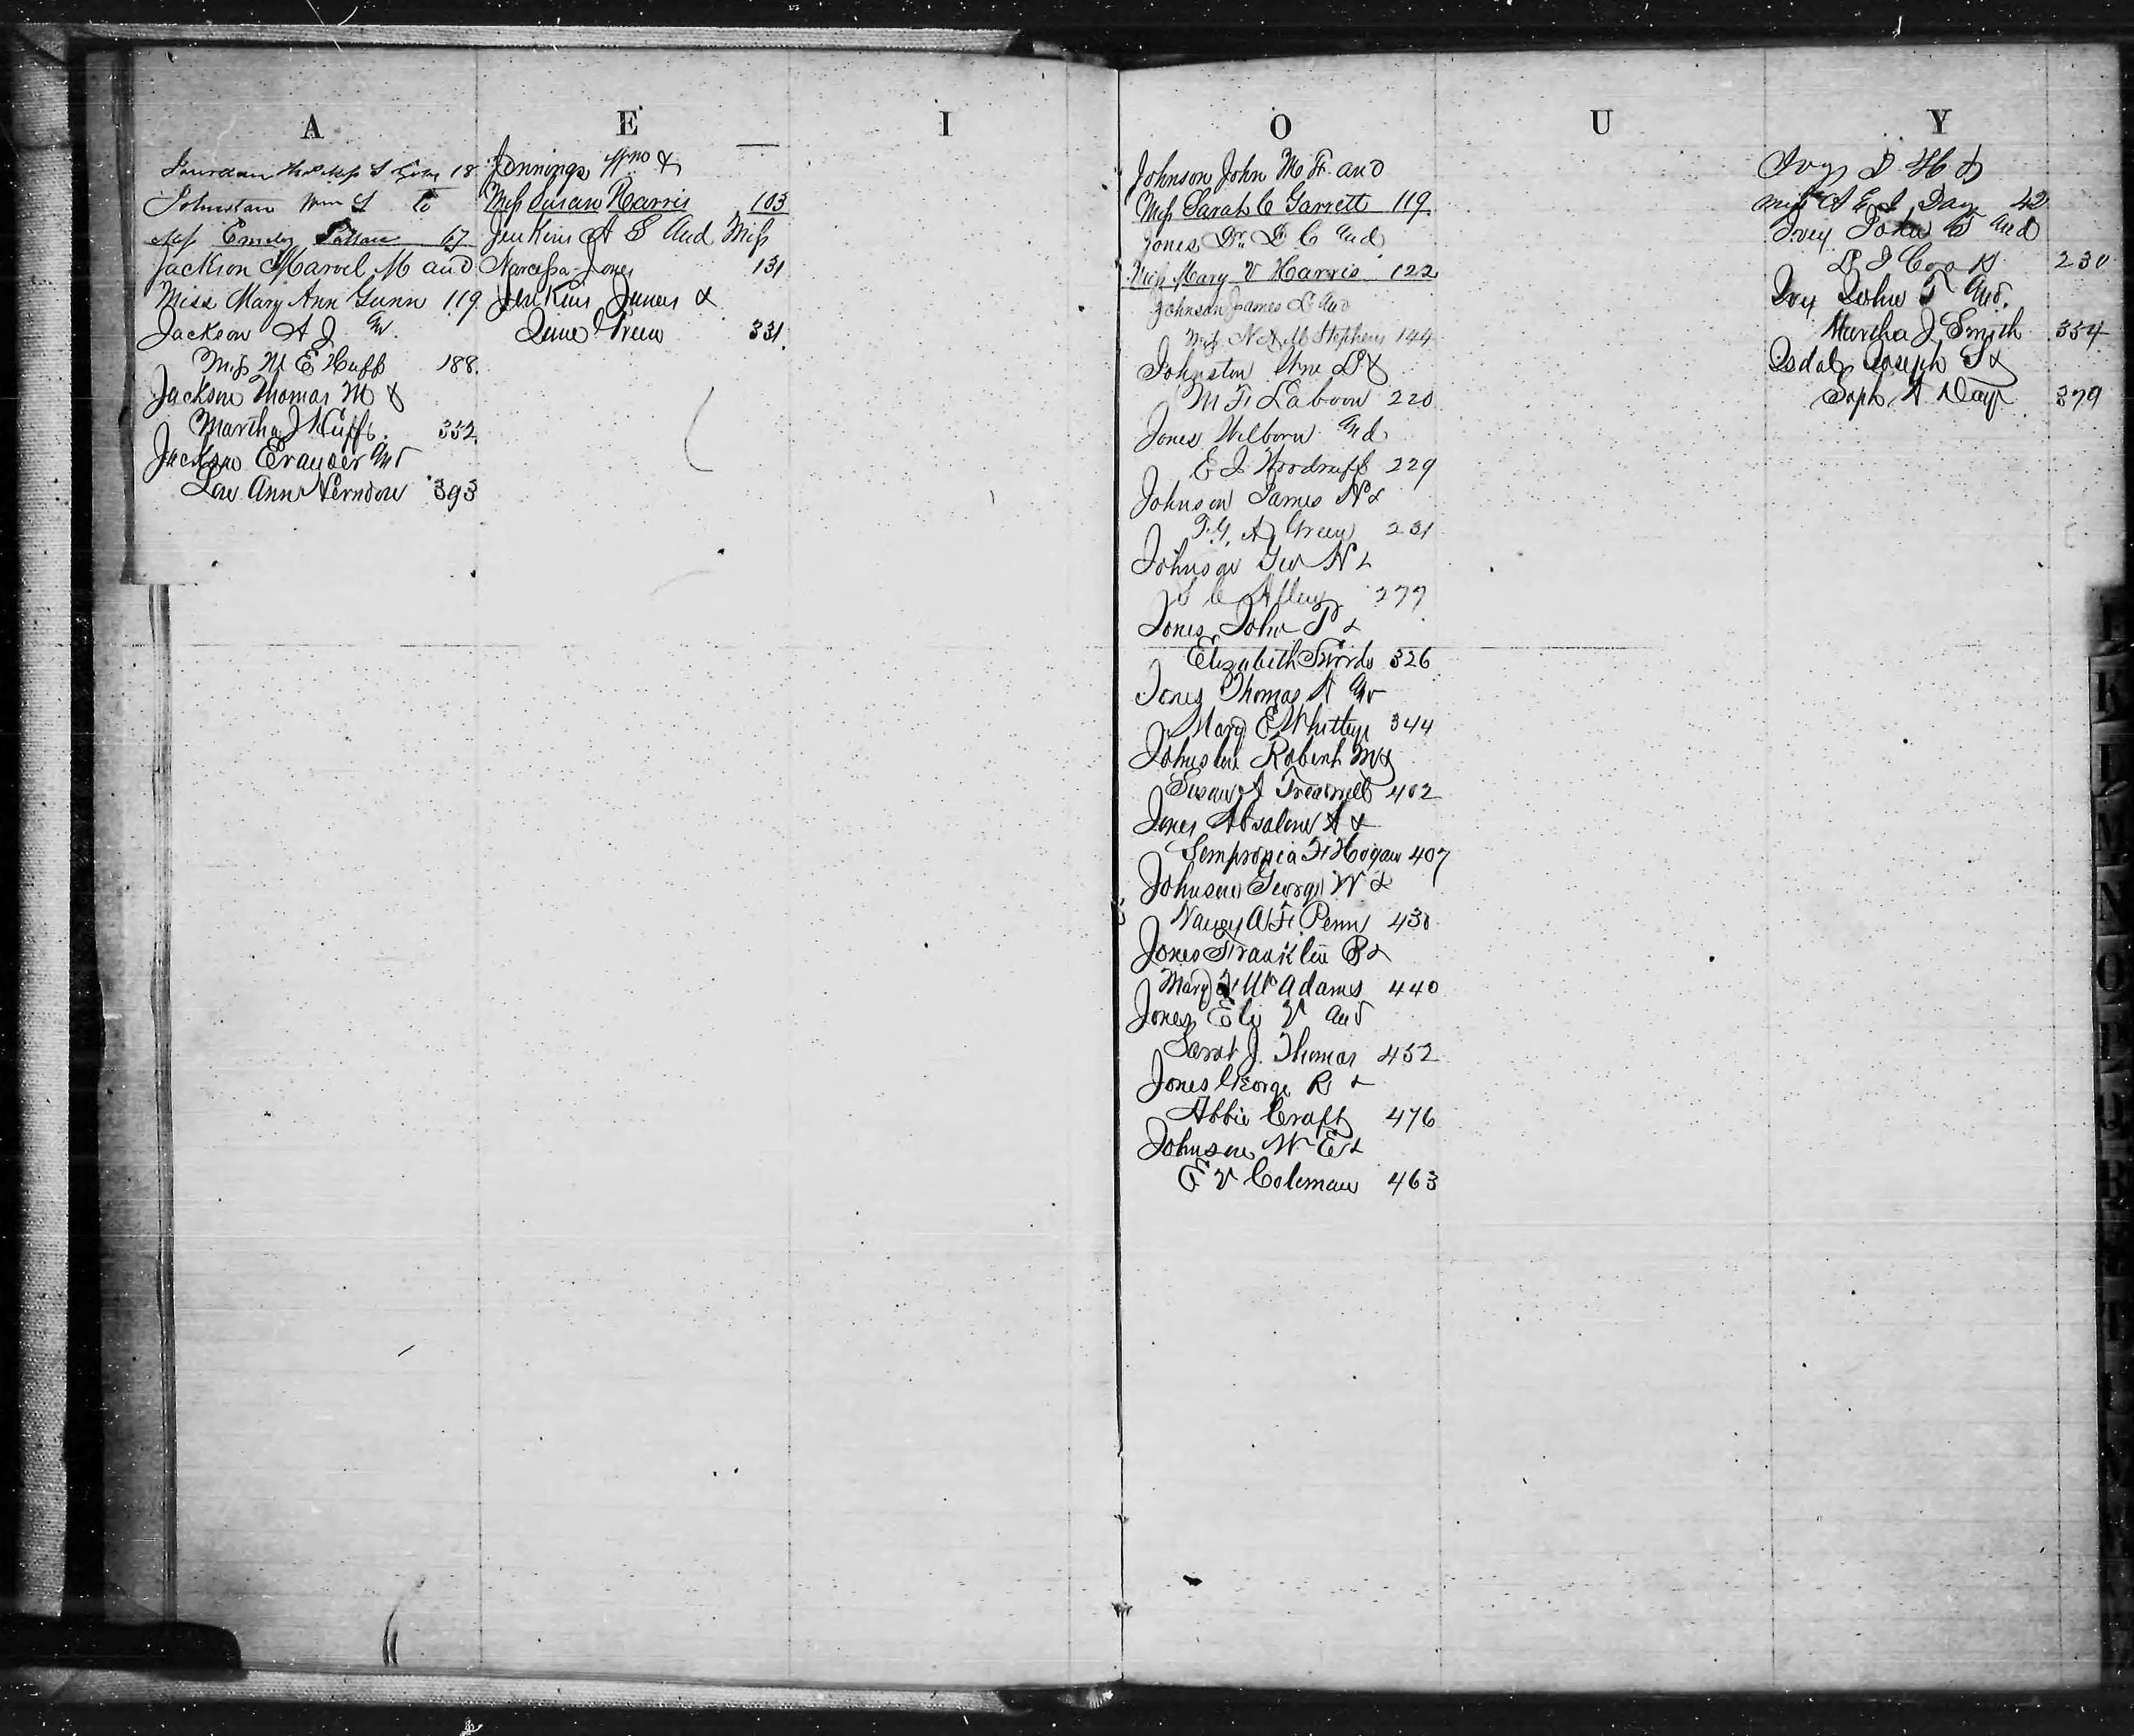 A
Johnston Wm S to
Miss Emily 67
Jackson Marvel M and
Miss Mary Ann Gunn 119
Jackson A J and
Miss M E Huff 188.
Jackson Thomas M &
Martha J Huff. 332
Jackson Evander and
Lou Ann Herndon 393
E
Jennings Wm &
Miss Susan Harris 103
Jenkins A S and Miss
Narcissa Jones 131
Jenkins James &
Green 331.
I
O
Johnson John M F. and
Miss Sarah C Garrett 119.
Jones, Dr. L C and
Miss Mary V Harris 122
Johnson James L and
Miss N A M Stephens 144
Johnston Wm D &
M F Laboon 220
Jones Wilborn and
E J Woodruff 229
Johnson James N &
F. G. A Green 231
Johnson Geo N &
S C Allen 277
Jones John P &
Elizabeth Swords 326
Jones Thomas A and
Mary E Whitty 344
Johnston Robert M &
Susan A Treadwell 402
Jones Absalom A &
Sempronia F Hogan 407
Johnson George W &
Nancy A F. Penn 430
Jones Franklin B &
Mary F McAdams 440
Jones Eli V and
Sarah J. Thomas 452
Jones George R &
Abbie Craft 476
Johnson W E &
E V Coleman 463
U
Y
Ivy D H &
Miss A E J Day 42
Ivey John B and
L J Cook 230
Ivy John T and.
Martha J Smith 354
Joseph S &
Soph. A Day 379
K
L
M
N
O